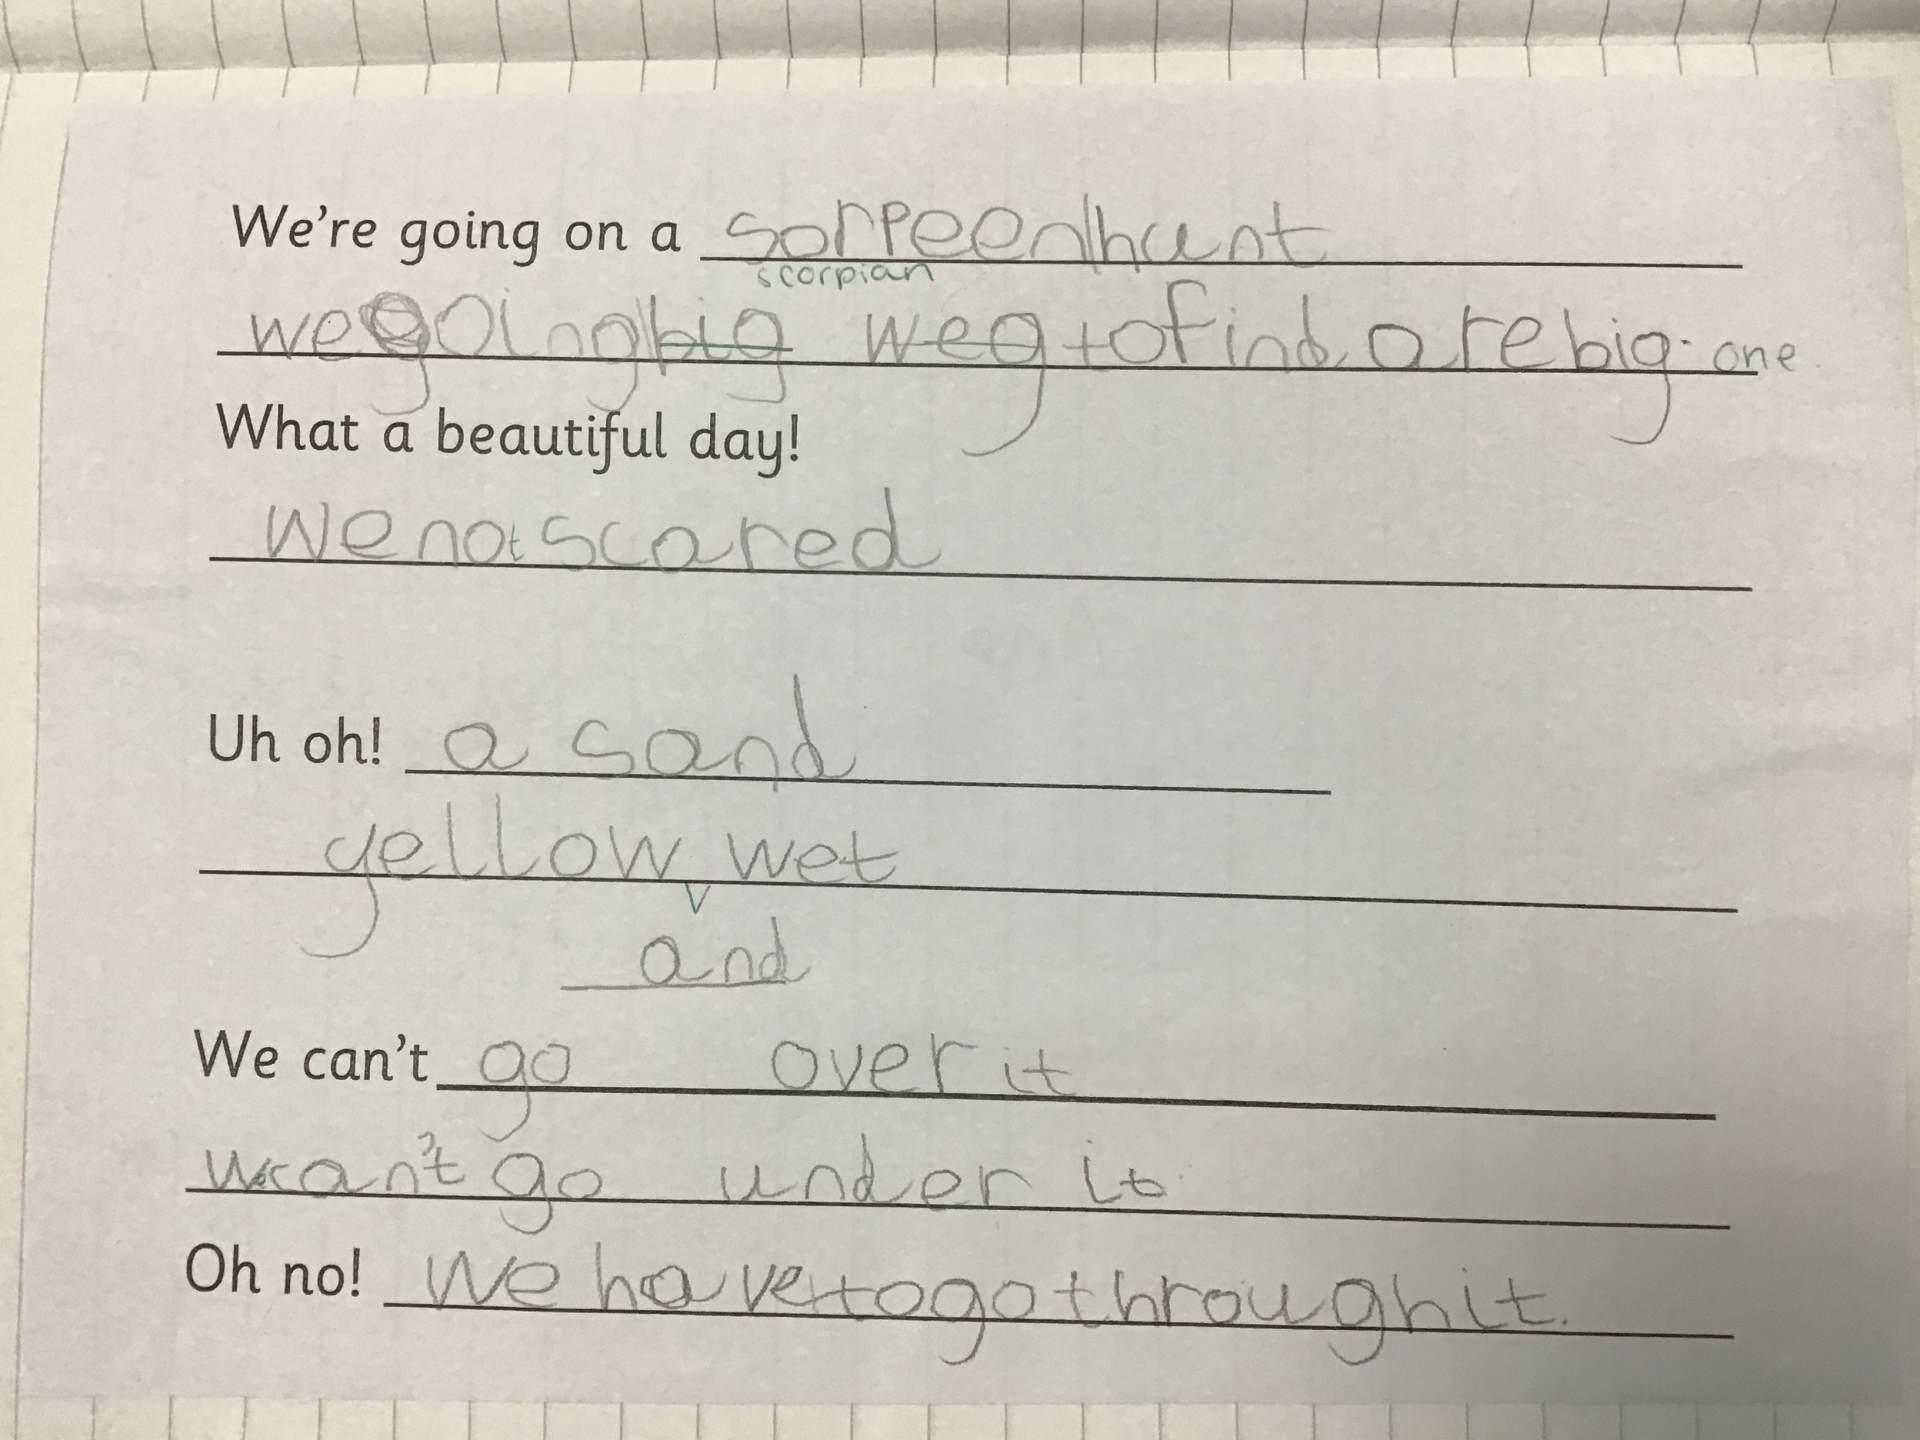 We're going on a sorpeen hunt
scorpian
we going big weg to find a re big. one
What a beautiful day!
We not scared
Uh oh! a sand
yellow wet
and
We can't go over it
we can't go under it
Oh no! We have to go through it.